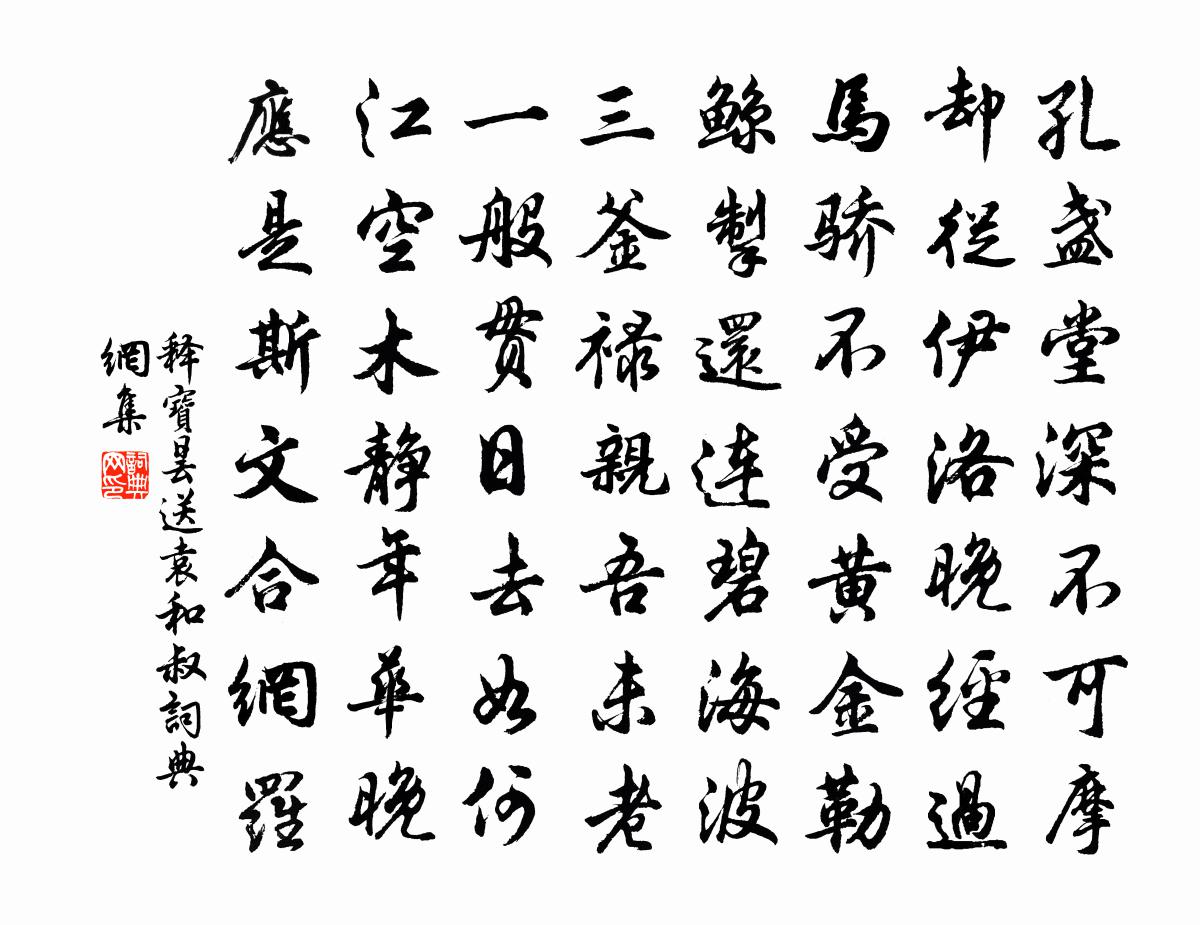 孔盏堂深不可摩
却從伊洛晚經過
馬骄不受黃金勒
鲸掣還连碧海波
三釜禄親吾未老
一般贯日去如何
江空木静年華晚
應是斯文合網羅
释寶昙送袁和叔詞典
網集
詞典网印